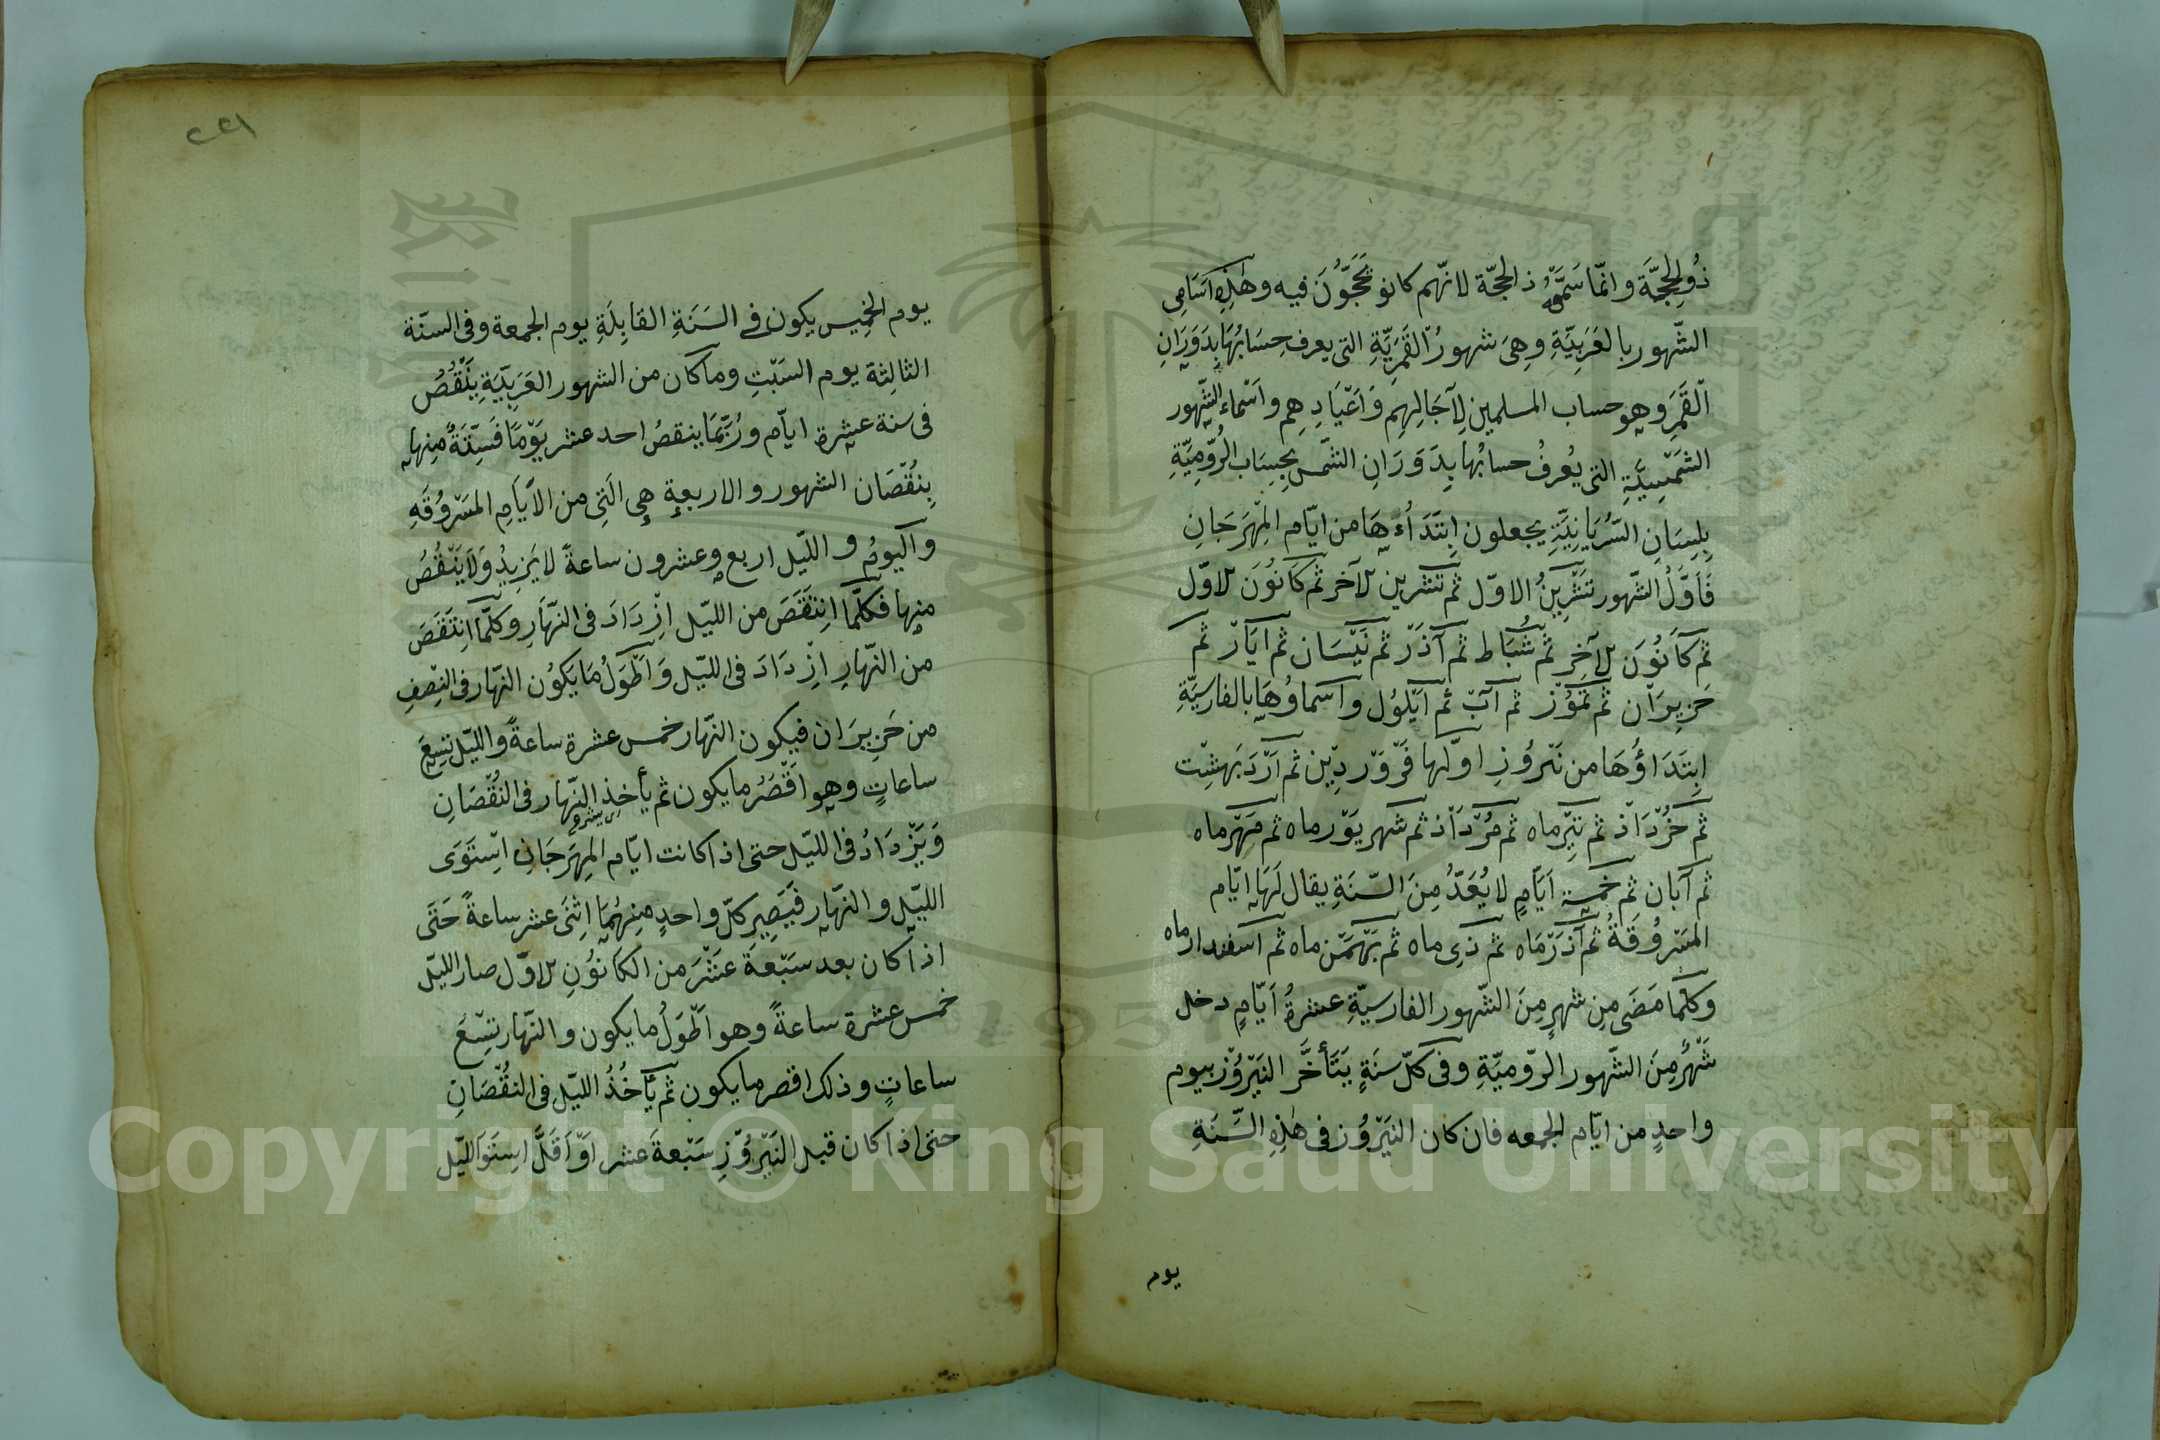 ذُو الْحِجَّةِ وانّما سَمَّوْهُ ذ الحجّة لانّهم كانو يَحُجُّونَ فيه وهٰذِهِ اَسَامِى
الشّهور بالعَرَبِيَّةِ وهِىَ شهورُ الْقَمَرِيَّةِ التى يعرف حِسَابُهَا بِدَوَرَانِ
الْقَمَرِ وهو حساب المسلمين لِآجَالِهِم وَاَعْيَادِهِم واَسْماء الشّهور
الشَّمْسِيَّةِ التى يُعرفُ حسابُها بِدَوَرَانِ الشّمس بِحِسَاب الرُّومِيَّةِ
بِلِسَانِ السُّرْيَانِيَّةِ يجعلون اِبْتَدَاءُهَا من ايّام المِهْرَجَانِ
فَاَوَّلُ الشّهور تَشْرِينُ الاوّل ثم تَشْرين لآخر ثم كَانُوْنَ لاوّل
ثم كَانُوْنَ لآخِرِ ثم شُبَاط ثم آذَرْ ثم نَيْسَان ثم ايَارْ ثم
حَزِيرَان ثم تَمُوْزْ ثم آبْ ثم اَيْلُوْل واسماوُهَا بالفارسيَّةِ
اِبْتَدَاؤُهَا من نَيْرُوْزِ اوّلها فَرْوَرْدِيْن ثم اَرْدَبَهِشْت
ثم خُرْدَاذْ ثم تِيْرماه ثم مُرْدَاذ ثم شهر يَوَرماه ثم مَهْرماه
ثم آبان ثم خمسة اَيّامٍ لا يُعَدُّ مِنَ السّنَةِ يقال لَهَا ايّام
المَسْرُوْقَةُ ثم آذَرْمَاه ثم ذى ماه ثم بَهْمَنْ ماه ثم اسفندارماه
وكلّما مَضَى مِن شهرٍ مِنَ الشّهور الفارسيّةِ عشرةُ اَيّامٍ دخل
شَهْرٌ مِنَ الشّهور الرّوميّةِ وفى كلّ سنَةٍ يَتَأخَّر النَيْرُوْز بيوم
واحدٍ من ايّام الجمعه فان كان النَيْرُوْز فى هٰذِهِ السَّنَةِ
يوم
٢٢١
يوم الخميس يكون فى السَنَةِ القابِلَةِ يوم الجمعة وفى السنّة
الثالِثة يوم السَبْتِ وما كان من الشهور العَرَبِيَّةِ يَنْقُصُ
فى سنة عشرة ايّام ورُبَّمَا ينقصُ احد عشر يَوْمًا فَسِتَّةٌ مِنها
بِنُقْصَان الشهور والاربعة هى الَتِى من الاَيّامِ المَسْرُوْقَةِ
واليَومُ والليّل اربع وعشرون ساعةً لا يَزِيدُ وَلَا يَنْقُصُ
منها فكلّما انِتَقَصَ من الليّل اِزْدَادَ فى النّهَارِ وكلّما انِتَقَصَ
من النهّارِ اِزْدَادَ فى الليّل وَاَطْوَلُ مَا يَكوُن النهّار فى النِصْفِ
من حَزِيرَان فَيكون النهّار خمس عشرة ساعةً والليّل تِسِعَ
ساعاتٍ وهو اَقْصَرُ ما يكون ثم يأخذ النهّار فى النُقْصَانِ
وَيَزْدَادُ فى الليّل حتى اذا كانت ايّام المِهرَجَان اسِتَوَى
الليّل والنهّار فَيَصِير كلّ واحدٍ منِهُمَا اثِنَى عشر ساعةً حَتَى
اذا كان بعد سَبْعَةَ عَشَرَ من الكَانُوْنِ لاوّل صار الليّل
خمس عشرة ساعةً وهو اَطْوَلُ ما يكون والنهّار تِسْعَ
ساعاتٍ وذلك اقصر ما يكون ثم يَأخُذُ الليّل فى النُقْصَانِ
حتى اذا كان قبل النَيْرُوْزِ سَبْعةَ عشر اَوْ اَقَلَّ اسِتَوَ الليّل
Copyright © King Saud University
1957